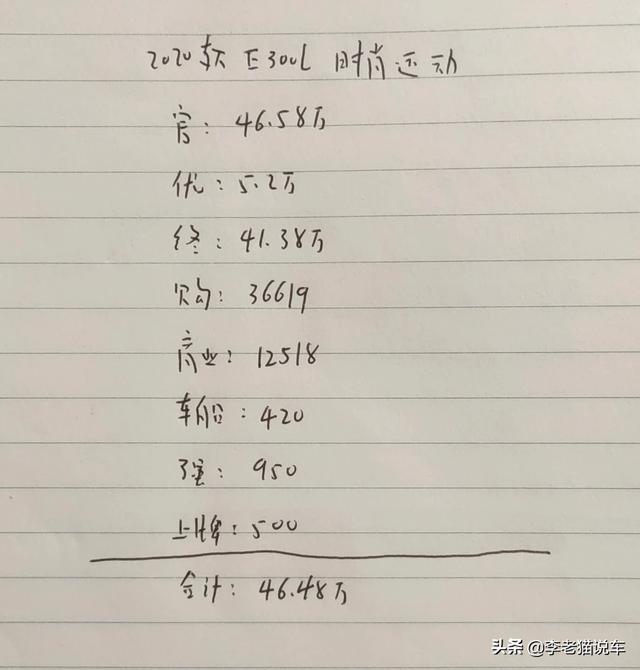 2020款 E300L 时尚运动
官: 46.58万
优: 5.2万
终: 41.38万
购: 36619
商业: 12518
车船: 420
强: 950
上牌: 500
合计: 46.48万
头条 @李老猫说车